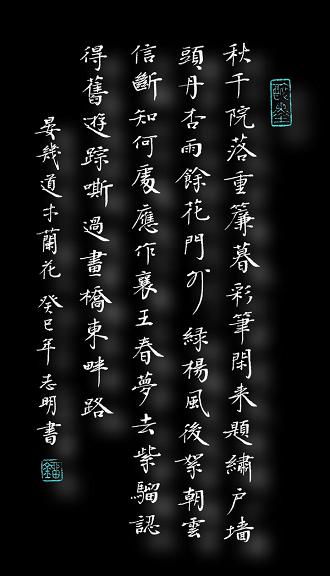 秋千院落重簾暮彩筆閑来題繡戶墙
頭丹杏雨餘花門外綠楊風後絮朝雲
信斷知何處應作襄王春夢去紫騮認
得舊遊踪嘶過畫橋東畔路
晏幾道木蘭花 癸巳年志明書